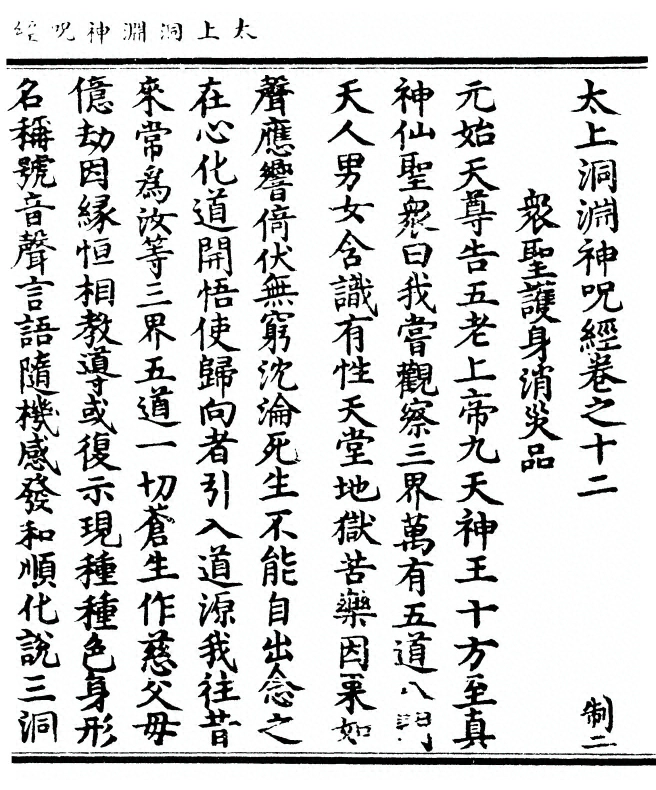 太上洞淵神呪經
太上洞淵神呪經卷之十二
制二
衆聖護身消災品
元始天尊告五老上帝九天神王十方至真
神仙聖衆曰我嘗觀察三界萬有五道八門
天人男女含識有性天堂地獄苦樂因果如
聲應響倚伏無窮沈淪死生不能自出念之
在心化道開悟使歸向者引入道源我往昔
來常爲汝等三界五道一切蒼生作慈父母
億劫因緣恒相教導或復示現種種色身形
名稱號音聲言語隨機感發和順化說三洞